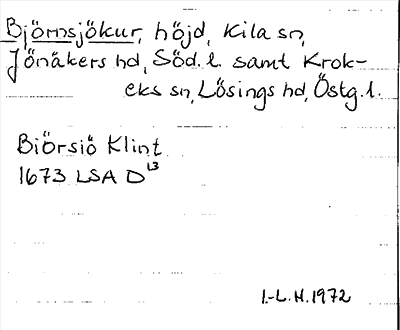 Björnsjökur, höjd, Kila sn,
Jönåkers hd, Söd. l. samt Krok-
eks sn, Lösings hd, Östg. l.
Biörsiö Klint
1673 LSA D 13
I.-L. H. 1972